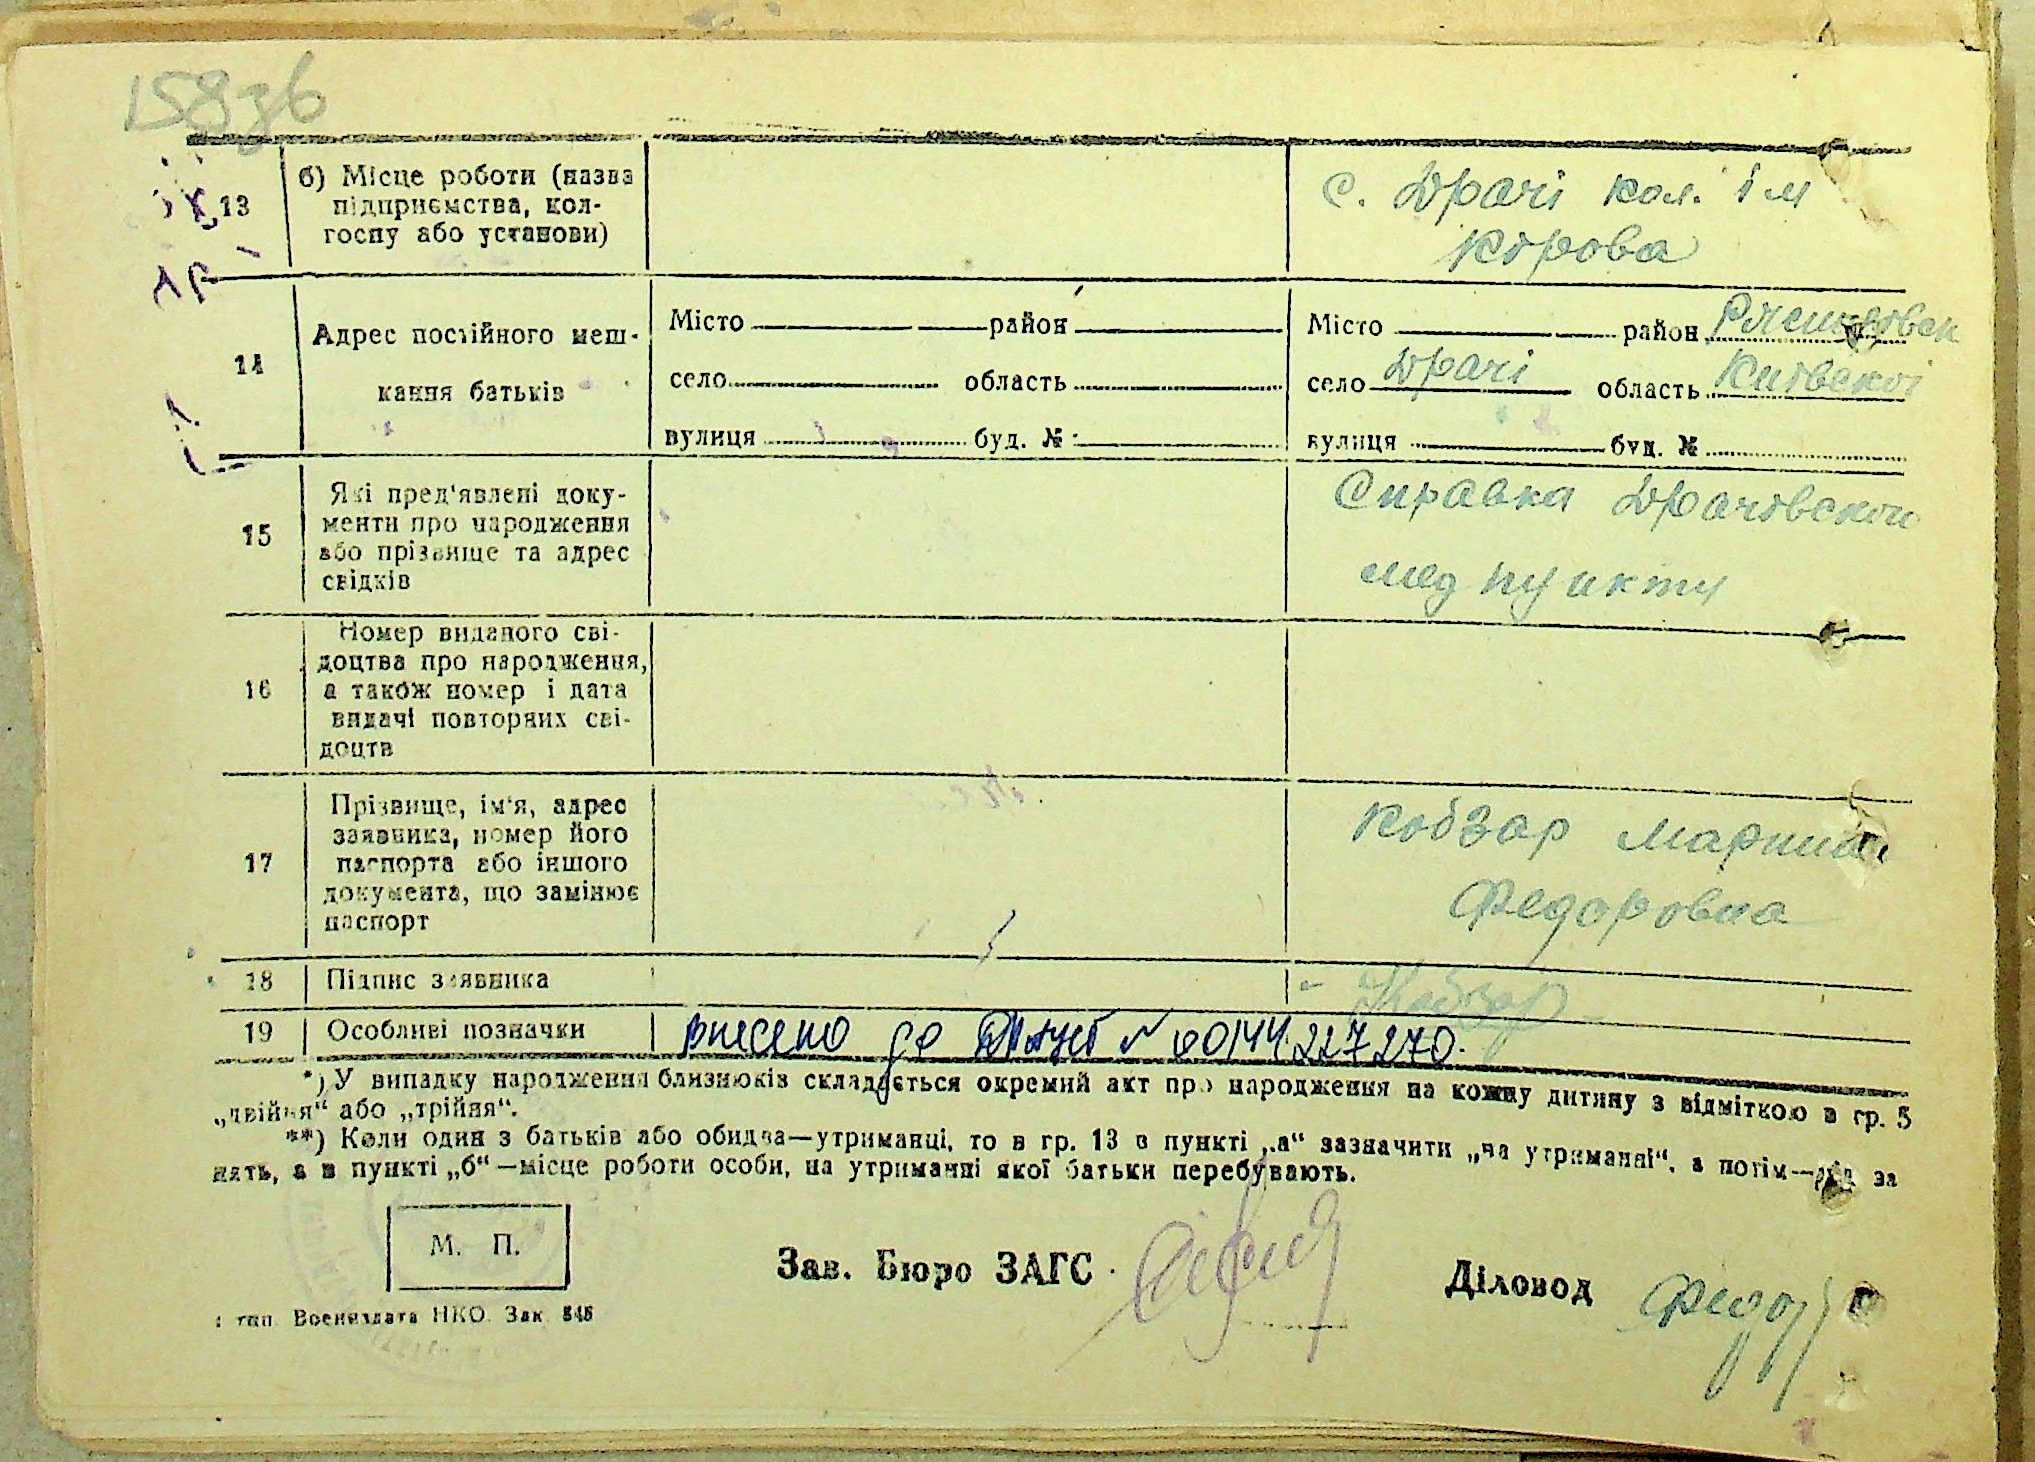 158зв
13
б) Місце роботи (назва
підприємства, кол-
госпу або установи)
с. Драчі кол. ім
Кірова
14
Адрес постійного меш-
кання батьків
Місто район
село область
вулиця буд. №
Місто район
село Драчі область Київскої
вулиця буд. №
15
Які пред'явлені доку-
менти про народження
або прізвище та адрес
свідків
Справка Драчовскои
мед пункту
16
Номер виданого сві-
доцтва про народження,
а також номер і дата
видачі повторних сві-
доцтв
17
Прізвище, ім'я, адрес
заявника, номер його
паспорта або іншого
документа, що замінює
паспорт
Кобзар Марина
Федоровна
18
Підпис заявника
Кобзар
19
Особливі позначки
внесено до № 00144227270.
*) У випадку народження близнюків складається окремий акт про народження на кожну дитину з відміткою в гр. 5
„двійня“ або „трійня“.
**) Коли один з батьків або обидва—утриманці, то в гр. 13 в пункті „а“ зазначити „на утриманні“, а потім— за
нять, а в пункті „б“—місце роботи особи, на утриманні якої батьки перебувають.
М. П.
Зав. Бюро ЗАГС
Діловод
тип. Воениздата НКО. Зак. 545